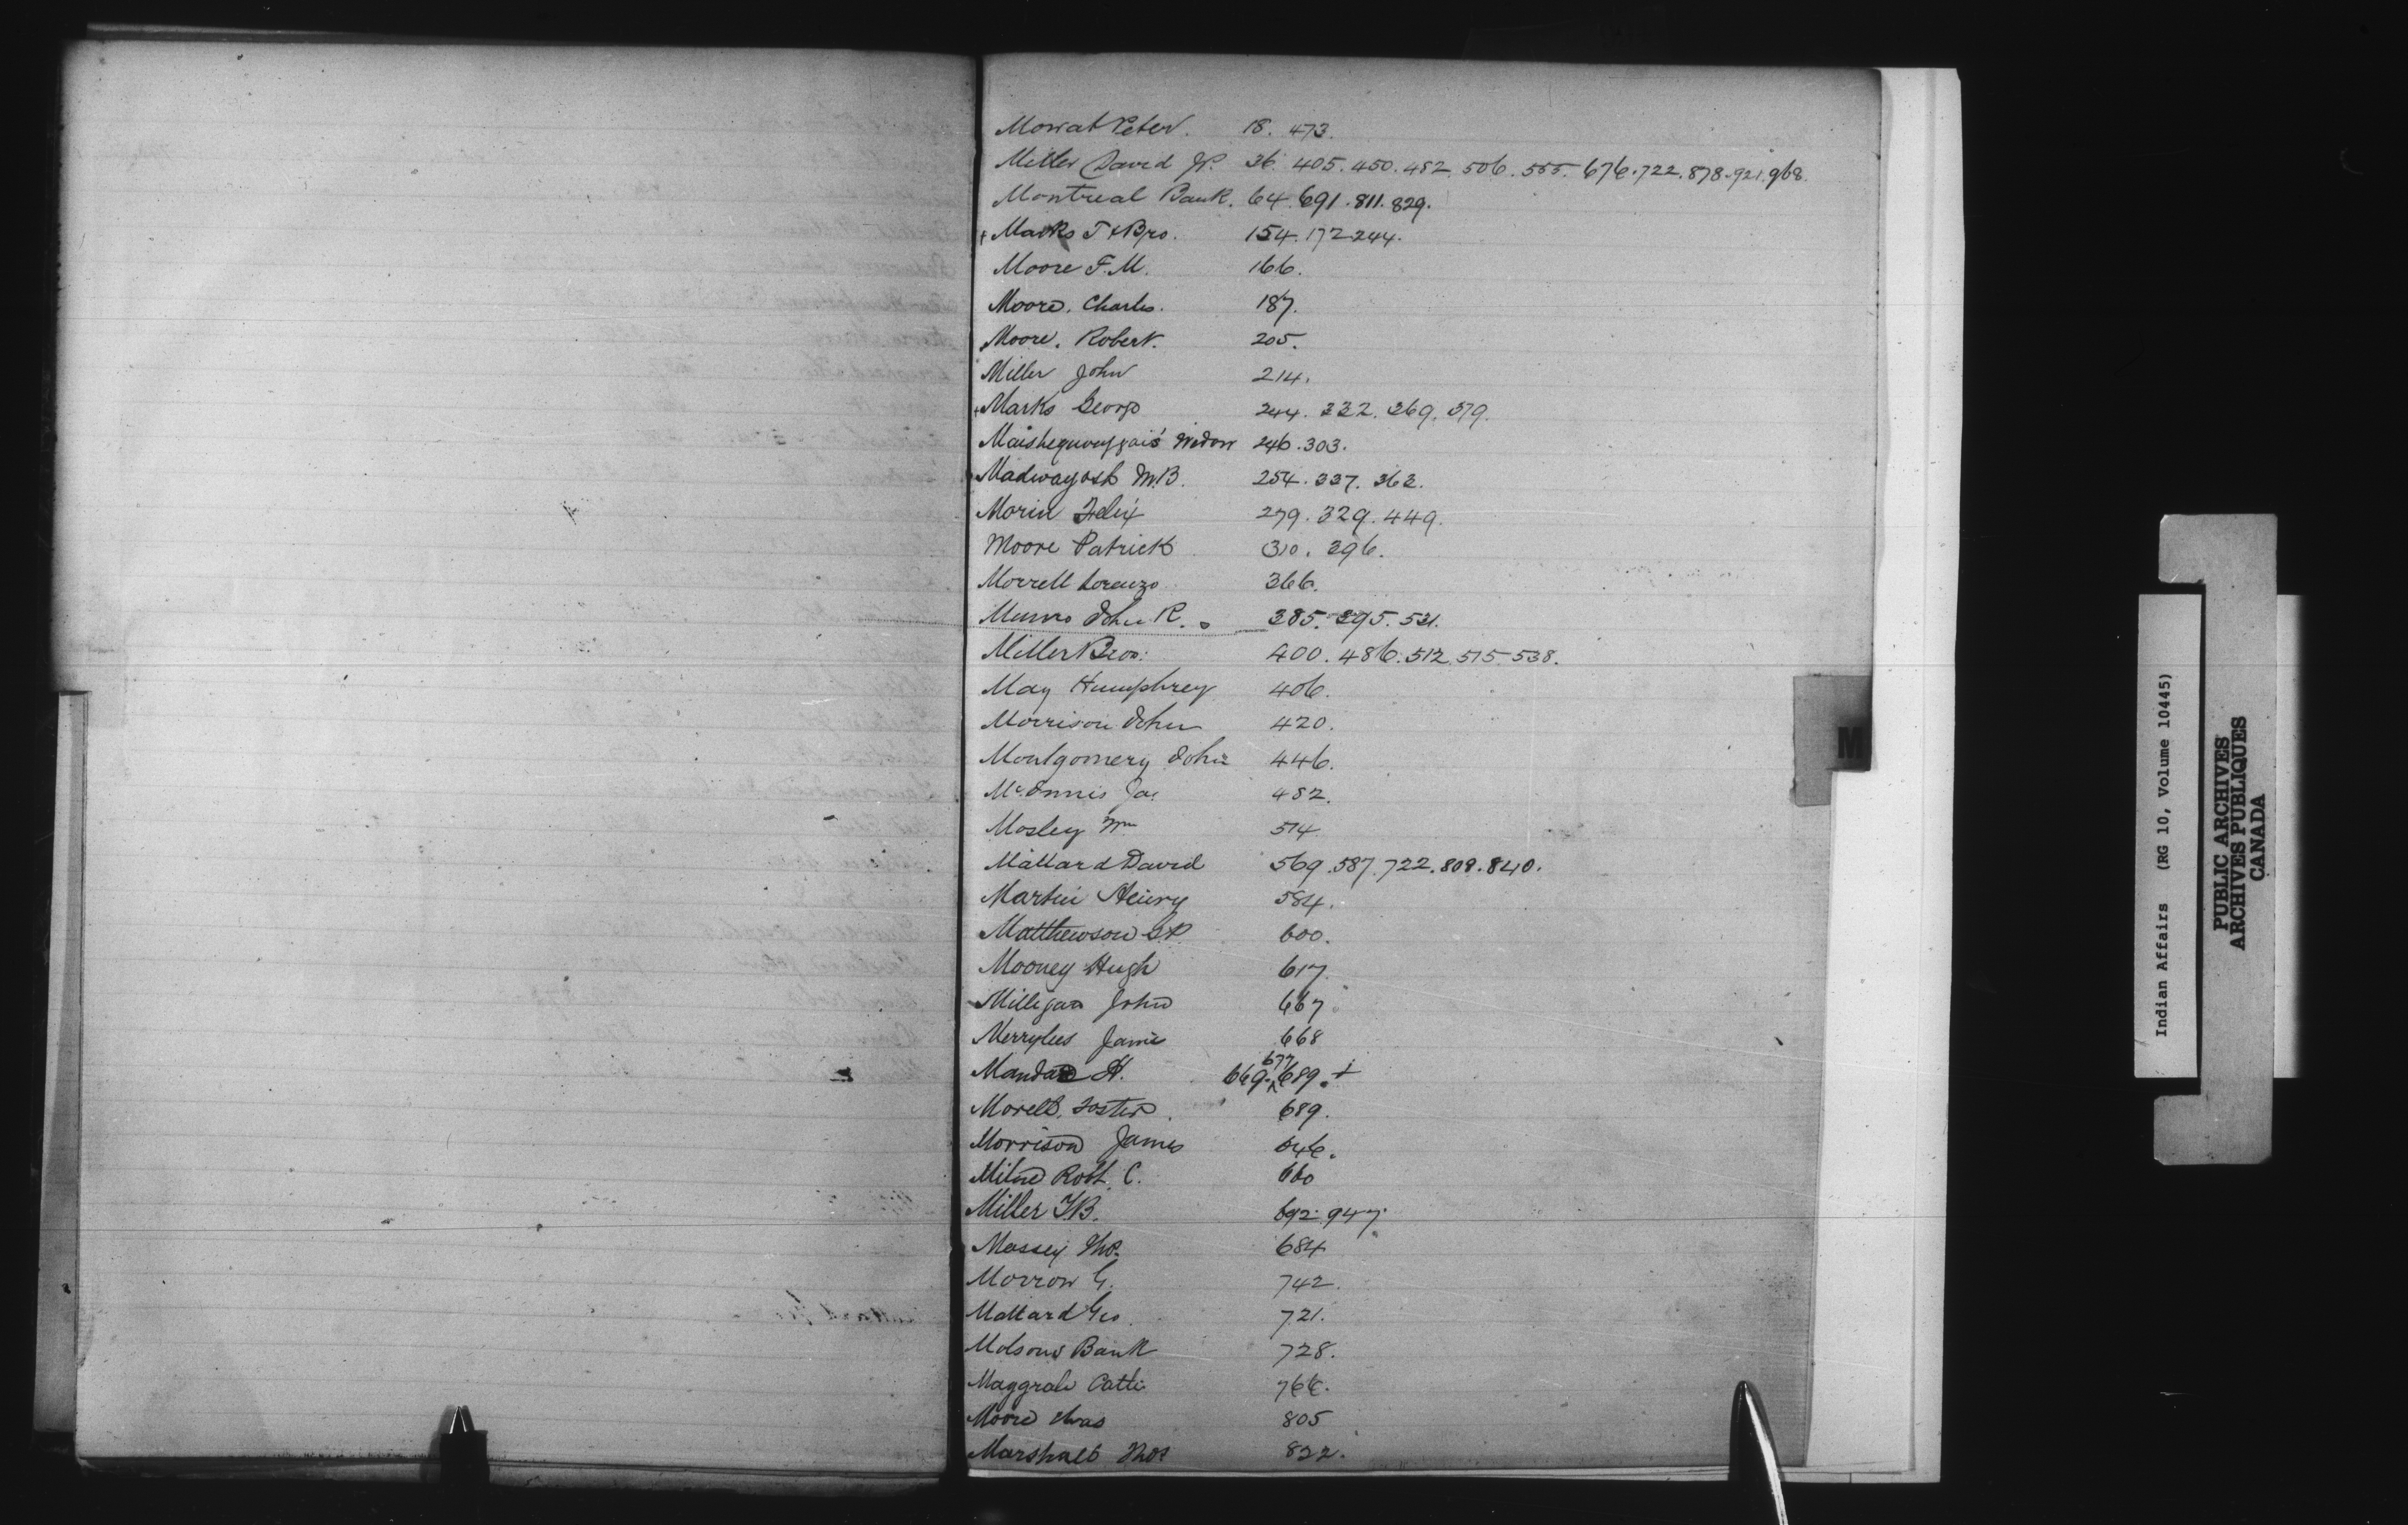 Mowat Peter. 18. 473.
Miller David Jr. 36. 405. 450. 482. 506. 555. 676. 722. 878. 921. 968.
Montreal Bank. 64. 691. 811. 829.
+ Marks T & Bro. 154. 172. 244.
Moore F. M. 166.
Moore. Charles. 187.
Moore. Robert. 205.
Miller John 214.
+ Marks George 244. 332. 369. 379.
Widow 246. 303.
Madwayosh M.B. 254. 337. 363.
Morin Felix 279. 329. 449.
Moore Patrick 310. 396.
Morrell Lorenzo 366.
Munro John R. 385. 395. 521.
Miller Bros. 400. 486. 512. 515. 538.
May Humphrey 406.
Morrison John 420.
Montgomery John 446.
McInnis Jas 482.
Mosley Wm 514.
Mallard David 569. 587. 722. 808. 840.
Martin Henry 584.
Matthewson 600.
Mooney Hugh 617.
Milligan John 667.
Merrylees James 668
M H. 669. 677 689. +
Morell. Foster 689.
Morrison James 646.
Milne Robt. C. 660
Miller 692. 947.
Massey Tho. 684
Morrow G. 742.
Mallard Geo. 721.
Molsons Bank 728.
766.
Moore Chas 805
Marshall Thos 822.
M
Indian Affairs (RG 10, Volume 10445)
PUBLIC ARCHIVES
ARCHIVES PUBLIQUES
CANADA